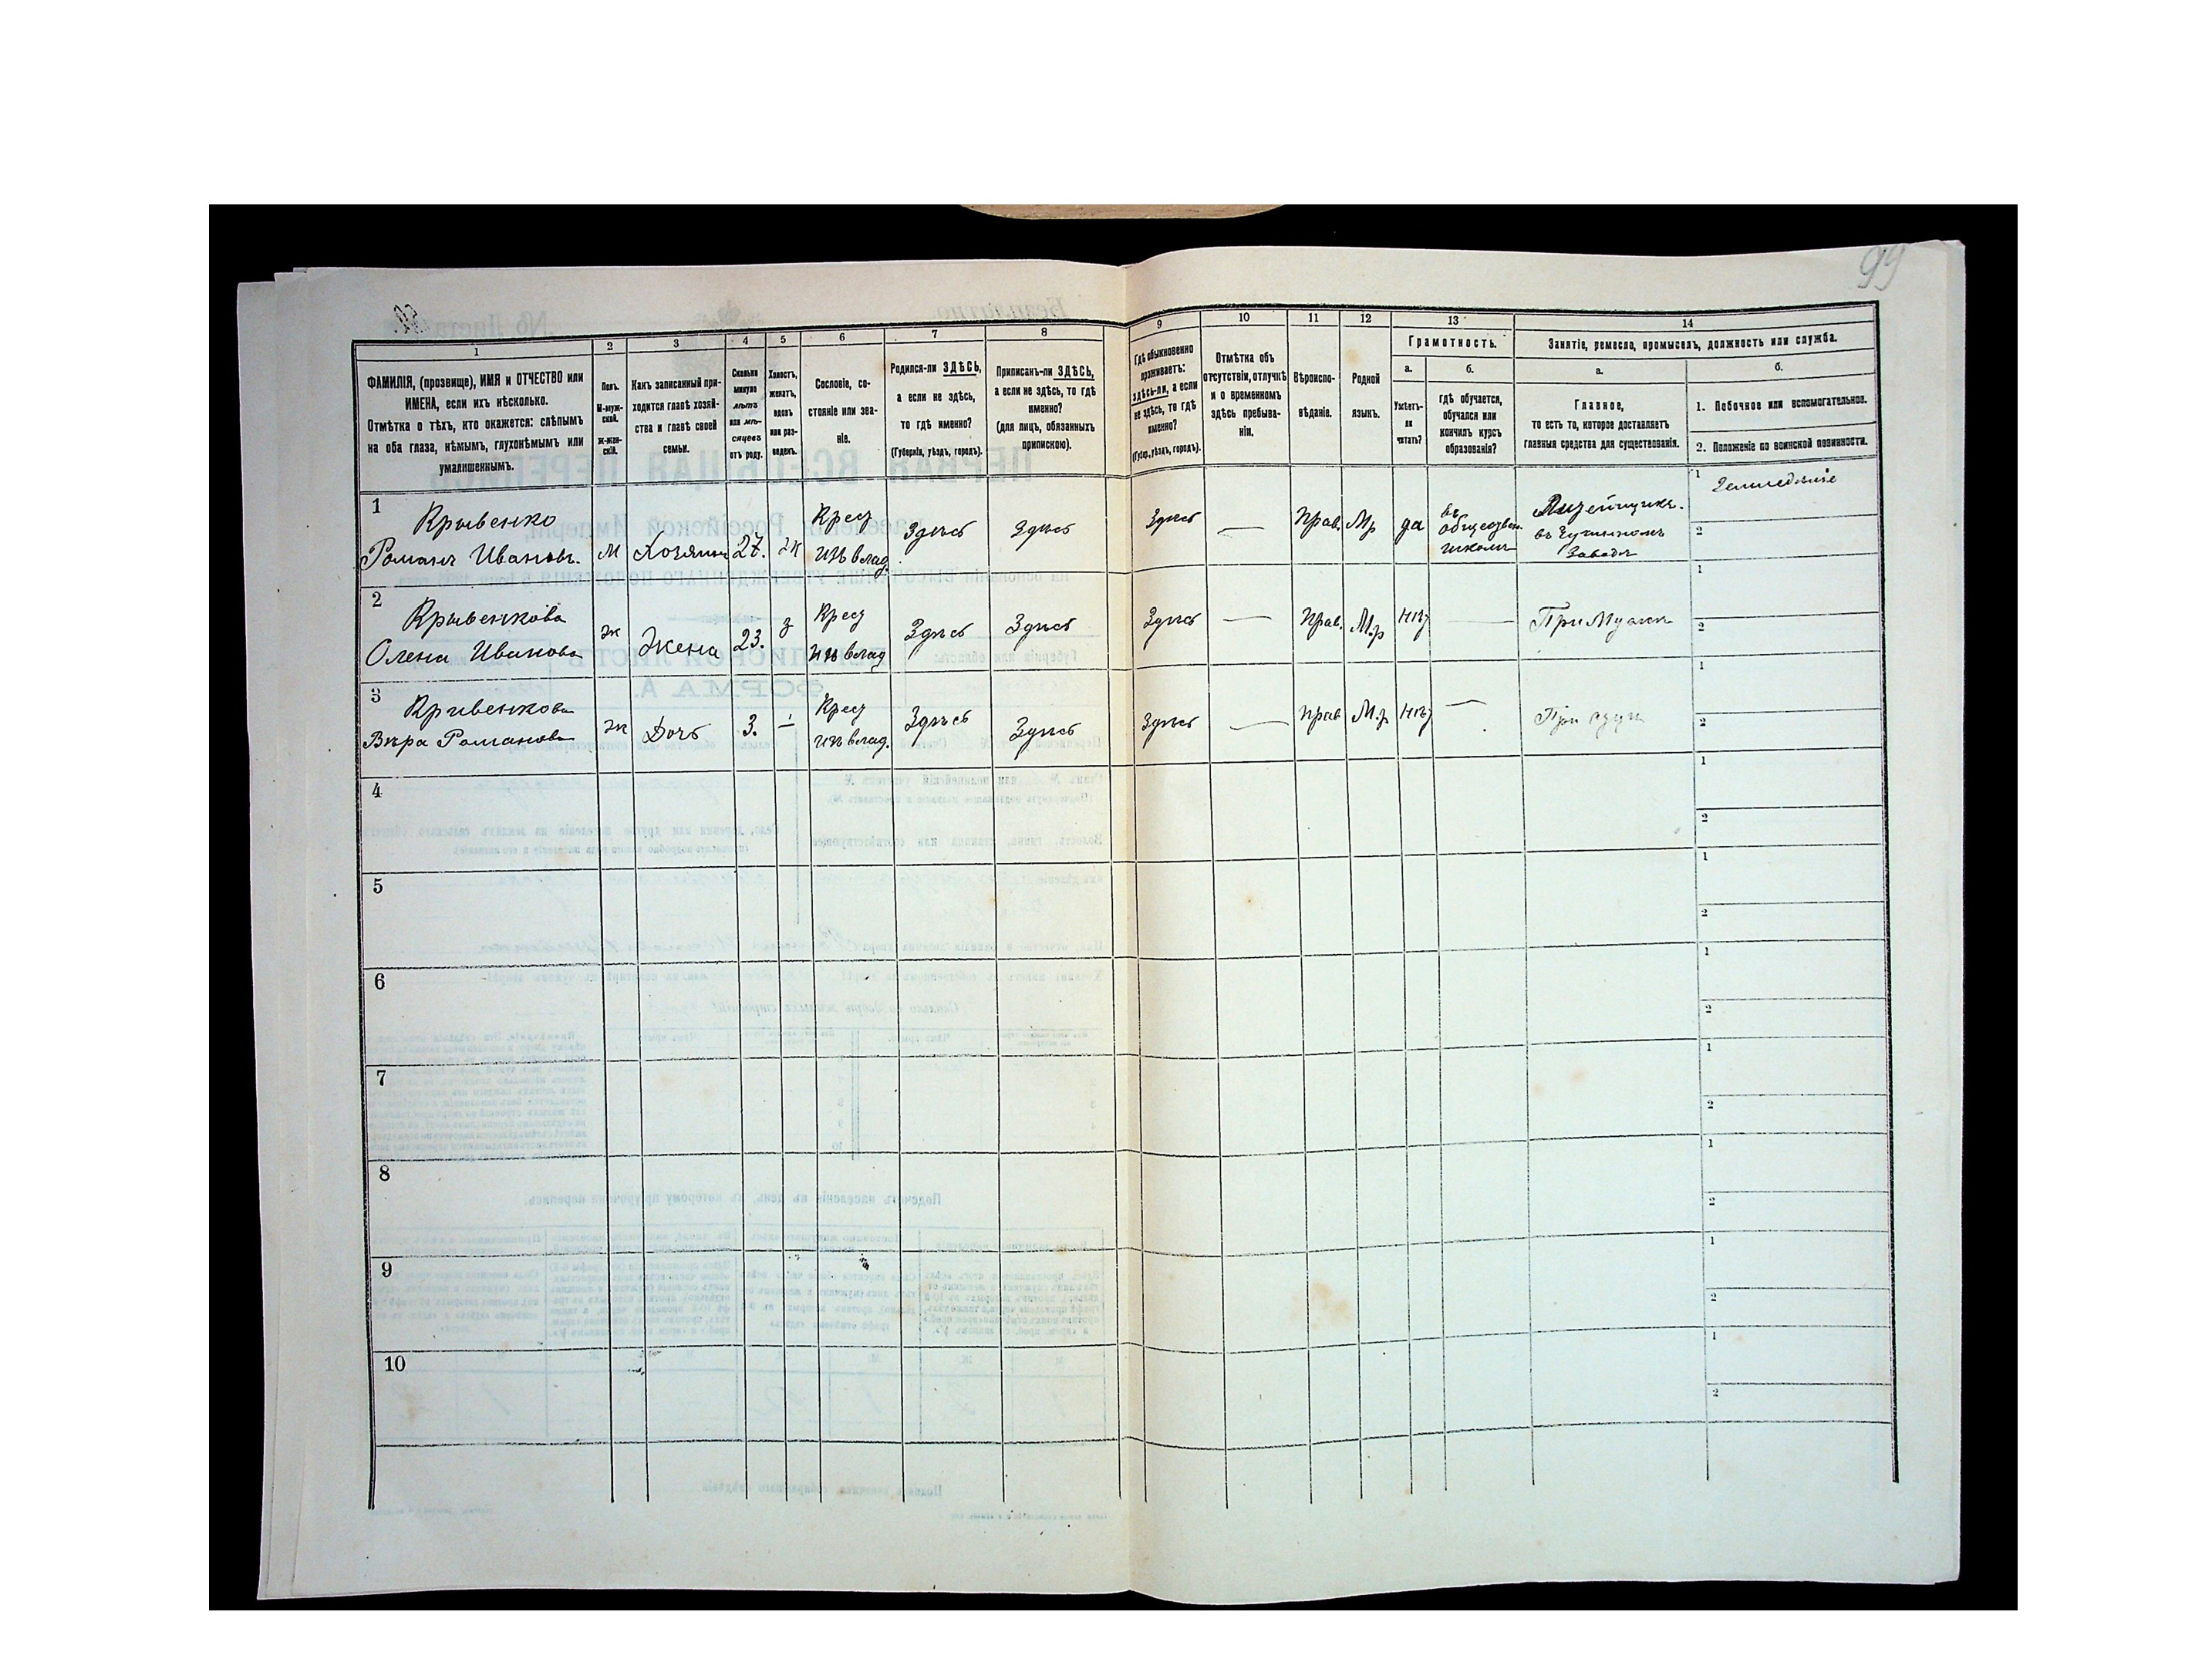 99
1 2 3 4 5 6 7 8 9 10 11 12 13 14
ФАМИЛІЯ, (прозвище), ИМЯ и ОТЧЕСТВО или
ИМЕНА, если ихъ нѣсколько.
Отмѣтка о тѣхъ, кто окажется: слѣпымъ
на оба глаза, нѣмымъ, глухонѣмымъ или
умалишеннымъ.
Полъ.
М-муж-
ской.
ж-жен-
скій.
Какъ записанный при-
ходится главѣ хозяй-
ства и главѣ своей
семьи.
Сколько
минуло
лѣтъ
или мѣ-
сяцевъ
отъ роду.
Холостъ,
женатъ,
вдовъ
или раз-
веденъ.
Сословіе, со-
стояніе или зва-
ніе.
Родился-ли ЗДѢСЬ,
а если не здѣсь,
то гдѣ именно?
(Губернія, уѣздъ, городъ).
Приписанъ-ли ЗДѢСЬ,
а если не здѣсь, то гдѣ
именно?
(для лицъ, обязанныхъ
припискою).
Гдѣ обыкновенно
проживаетъ:
здѣсь-ли, а если
не здѣсь, то гдѣ
именно?
(Губер., уѣздъ, городъ).
Отмѣтка объ
отсутствіи, отлучкѣ
и о временномъ
здѣсь пребыва-
ніи.
Вѣроиспо-
вѣданіе.
Родной
языкъ.
Грамотность.
а.
Умѣетъ-
ли
читать?
б.
гдѣ обучается,
обучался или
кончилъ курсъ
образованія?
Занятіе, ремесло, промыселъ, должность или служба.
а.
Главное,
то есть то, которое доставляетъ
главныя средства для существованія.
б.
1. Побочное или вспомогательное.
2. Положеніе по воинской повинности.
1
Крывенко
Романъ Ивановъ.
М
Хозяинъ
27.
ж
Крес
изъ влад.
Здѣсь
Здѣсь
Здѣсь
—
Прав.
Мр
да
въ
обществен.
школѣ
въ
Заводѣ
1 Земледѣліе
2
2
Крывенкова
Олена Иванова
ж
Жена
23.
з
Крес
изъ влад
Здѣсь
Здѣсь
Здѣсь
—
Прав.
М.р
нѣт
—
При Мужѣ
1
2
3
Кривенкова
Вѣра Романова
ж
Дочь
3.
—
Крес
изъ влад.
Здѣсь
Здѣсь
Здѣсь
—
Прав
М.р
нѣт
—
При отцѣ
1
2
4
1
2
5
1
2
6
1
2
7
1
2
8
1
2
9
1
2
10
1
2